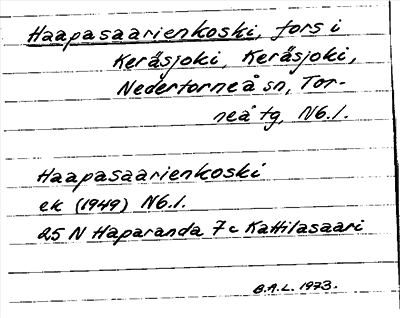 Haapasaarienkoski, fors i
Keräsjoki, Keräsjoki,
Nedertorneå sn, Tor-
neå tg, Nb.l.
Haapasaarienkoski
ek (1949) Nb.l.
25 N Haparanda 7c Kattilasaari
B.A.L. 1973.